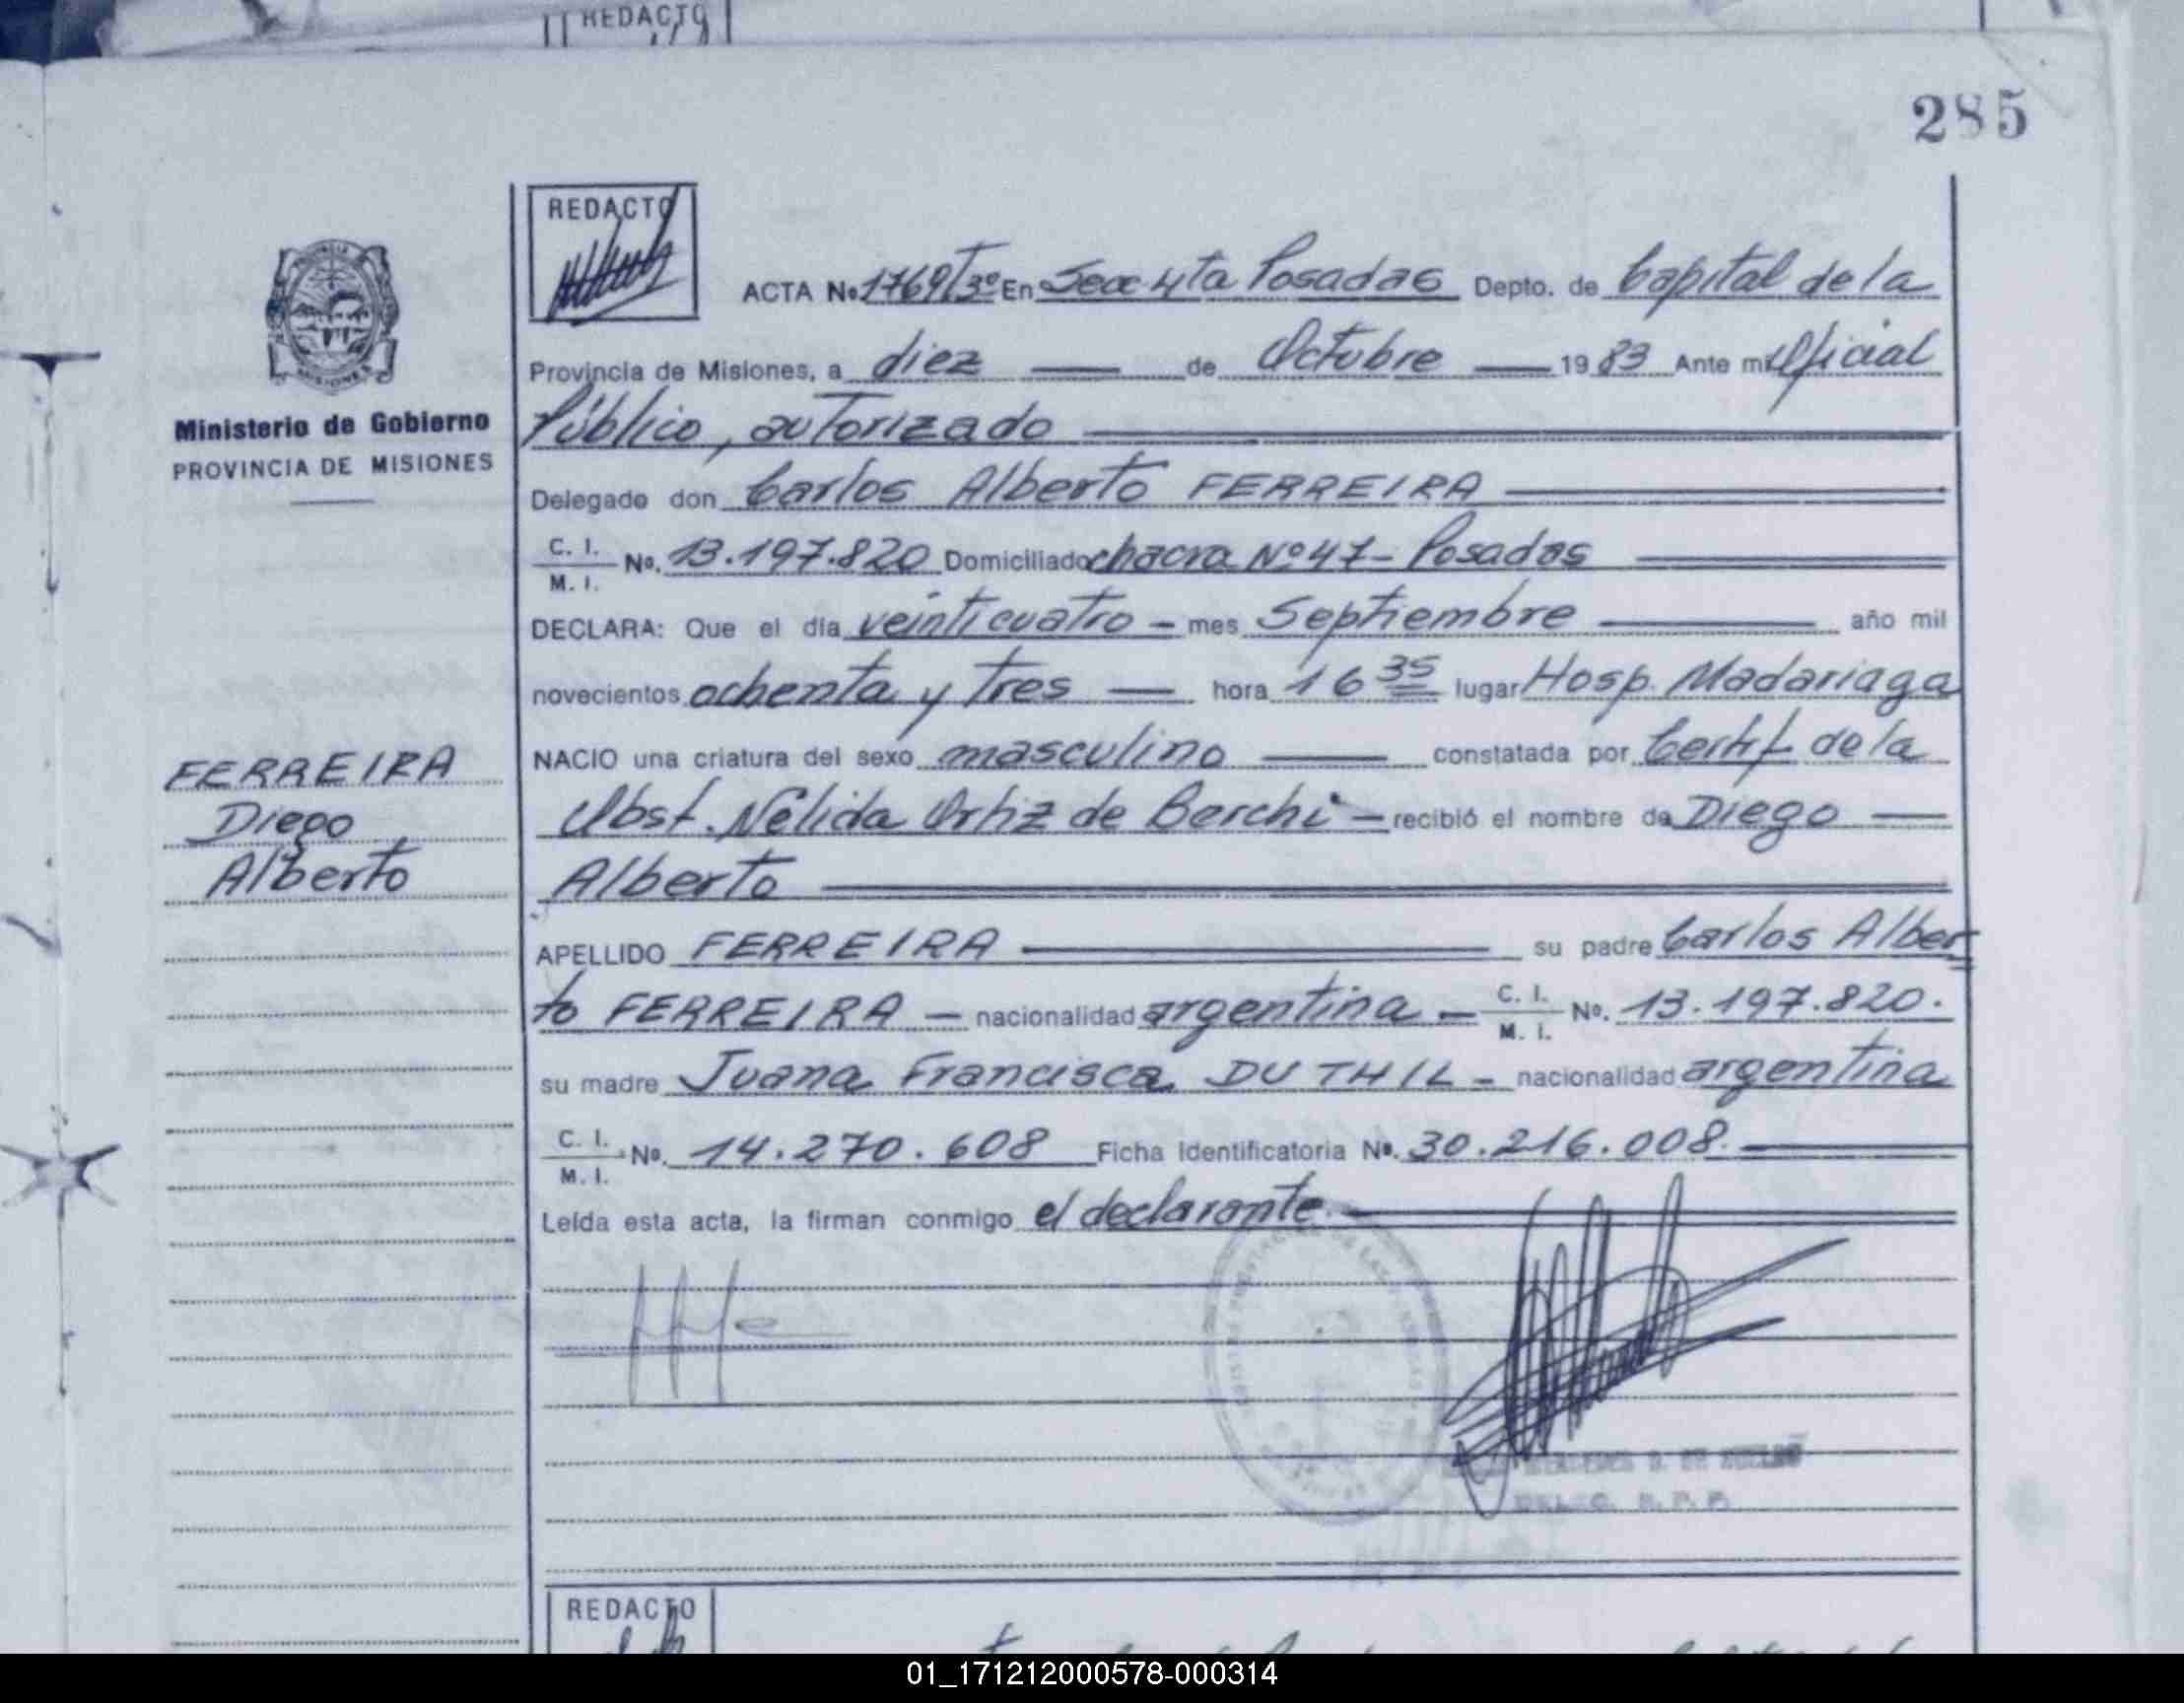 REDACTO
285
REDACTO
ACTA No. 1769/T3º En Secc 4ta Posadas Depto. de Capital de la
Provincia de Misiones, a diez de Octubre 1983 Ante mi Oficial
Público, autorizado
Ministerio de Gobierno
PROVINCIA DE MISIONES
Delegado don Carlos Alberto FERREIRA
C. I. M. I. No. 13.197.820 Domiciliado chacra Nº 47- Posadas
DECLARA: Que el día veinticuatro - mes Septiembre año mil
novecientos ochenta y tres hora 16 35 lugar Hosp. Madariaga
NACIO una criatura del sexo masculino constatada por Certif. de la
Obst. Nélida Ortiz de Berchi - recibió el nombre de Diego
Alberto
FERREIRA
Diego
Alberto
APELLIDO FERREIRA su padre Carlos Alber
to FERREIRA - nacionalidad argentina - C. I. M. I. No. 13.197.820.
su madre Juana Francisca DUTHIL - nacionalidad argentina
C. I. M. I. No. 14.270.608 Ficha Identificatoria No. 30.216.008.
Leída esta acta, la firman conmigo el declarante
REDACTO
01_171212000578-000314